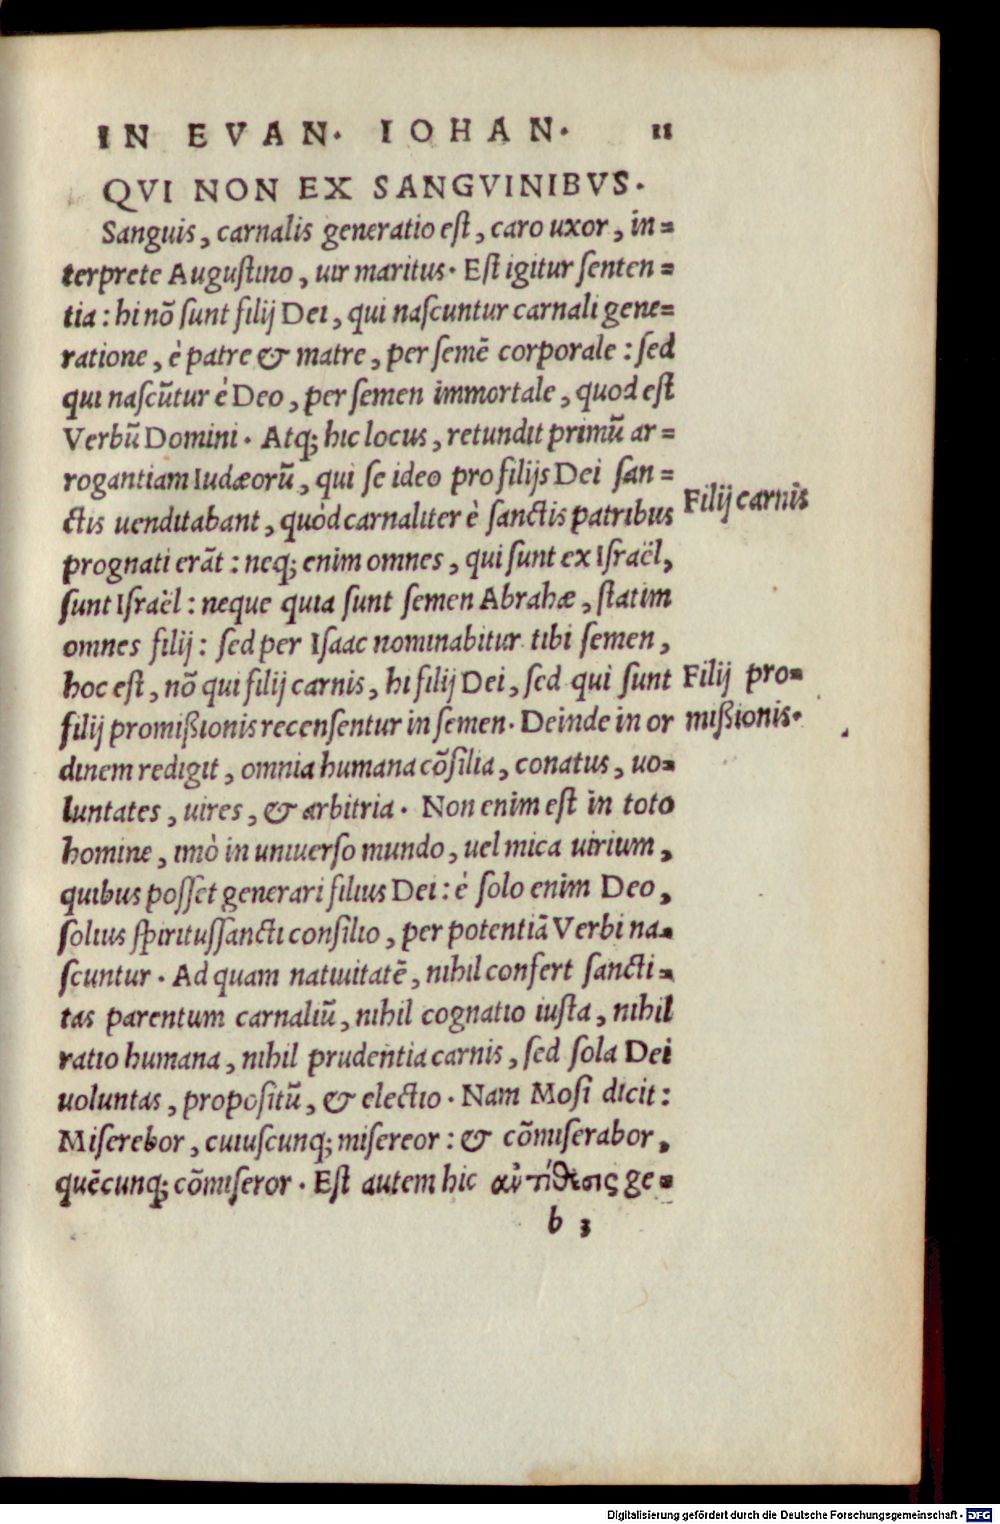 IN EVAN. IOHAN. 11
QVI NON EX SANGVINIBVS.
Sanguis, carnalis generatio est, caro uxor, in=
terprete Augustino, uir maritus. Est igitur senten=
tia: hi nõ sunt filij Dei, qui nascuntur carnali gene=
ratione, è patre & matre, per semẽ corporale: sed
qui nascũtur è Deo, per semen immortale, quod est
Verbũ Domini. Atq; hic locus, retundit primũ ar=
rogantiam Iudæorũ, qui se ideo pro filijs Dei san=
ctis uenditabant, quòd carnaliter è sanctis patribus
Filij carnis
prognati erãt: neq; enim omnes, qui sunt ex Israël,
sunt Israël: neque quia sunt semen Abrahæ, statim
omnes filij: sed per Isaac nominabitur tibi semen,
hoc est, nõ qui filij carnis, hi filij Dei, sed qui sunt
Filij pro=
filij promißionis recensentur in semen. Deinde in or
mißionis.
dinem redigit, omnia humana cõsilia, conatus, uo=
luntates, uires, & arbitria. Non enim est in toto
homine, imò in uniuerso mundo, uel mica uirium,
quibus posset generari filius Dei: è solo enim Deo,
solius spiritussancti consilio, per potentiã Verbi na=
scuntur. Ad quam natiuitatẽ, nihil confert sancti=
tas parentum carnaliũ, nihil cognatio iusta, nihil
ratio humana, nihil prudentia carnis, sed sola Dei
uoluntas, propositũ, & electio. Nam Mosi dicit:
Miserebor, cuiuscunq; misereor: & cõmiserabor,
quẽcunq; cõmiseror. Est autem hic ἀντίθεσις ge=
b 3
Digitalisierung gefördert durch die Deutsche Forschungsgemeinschaft - DFG